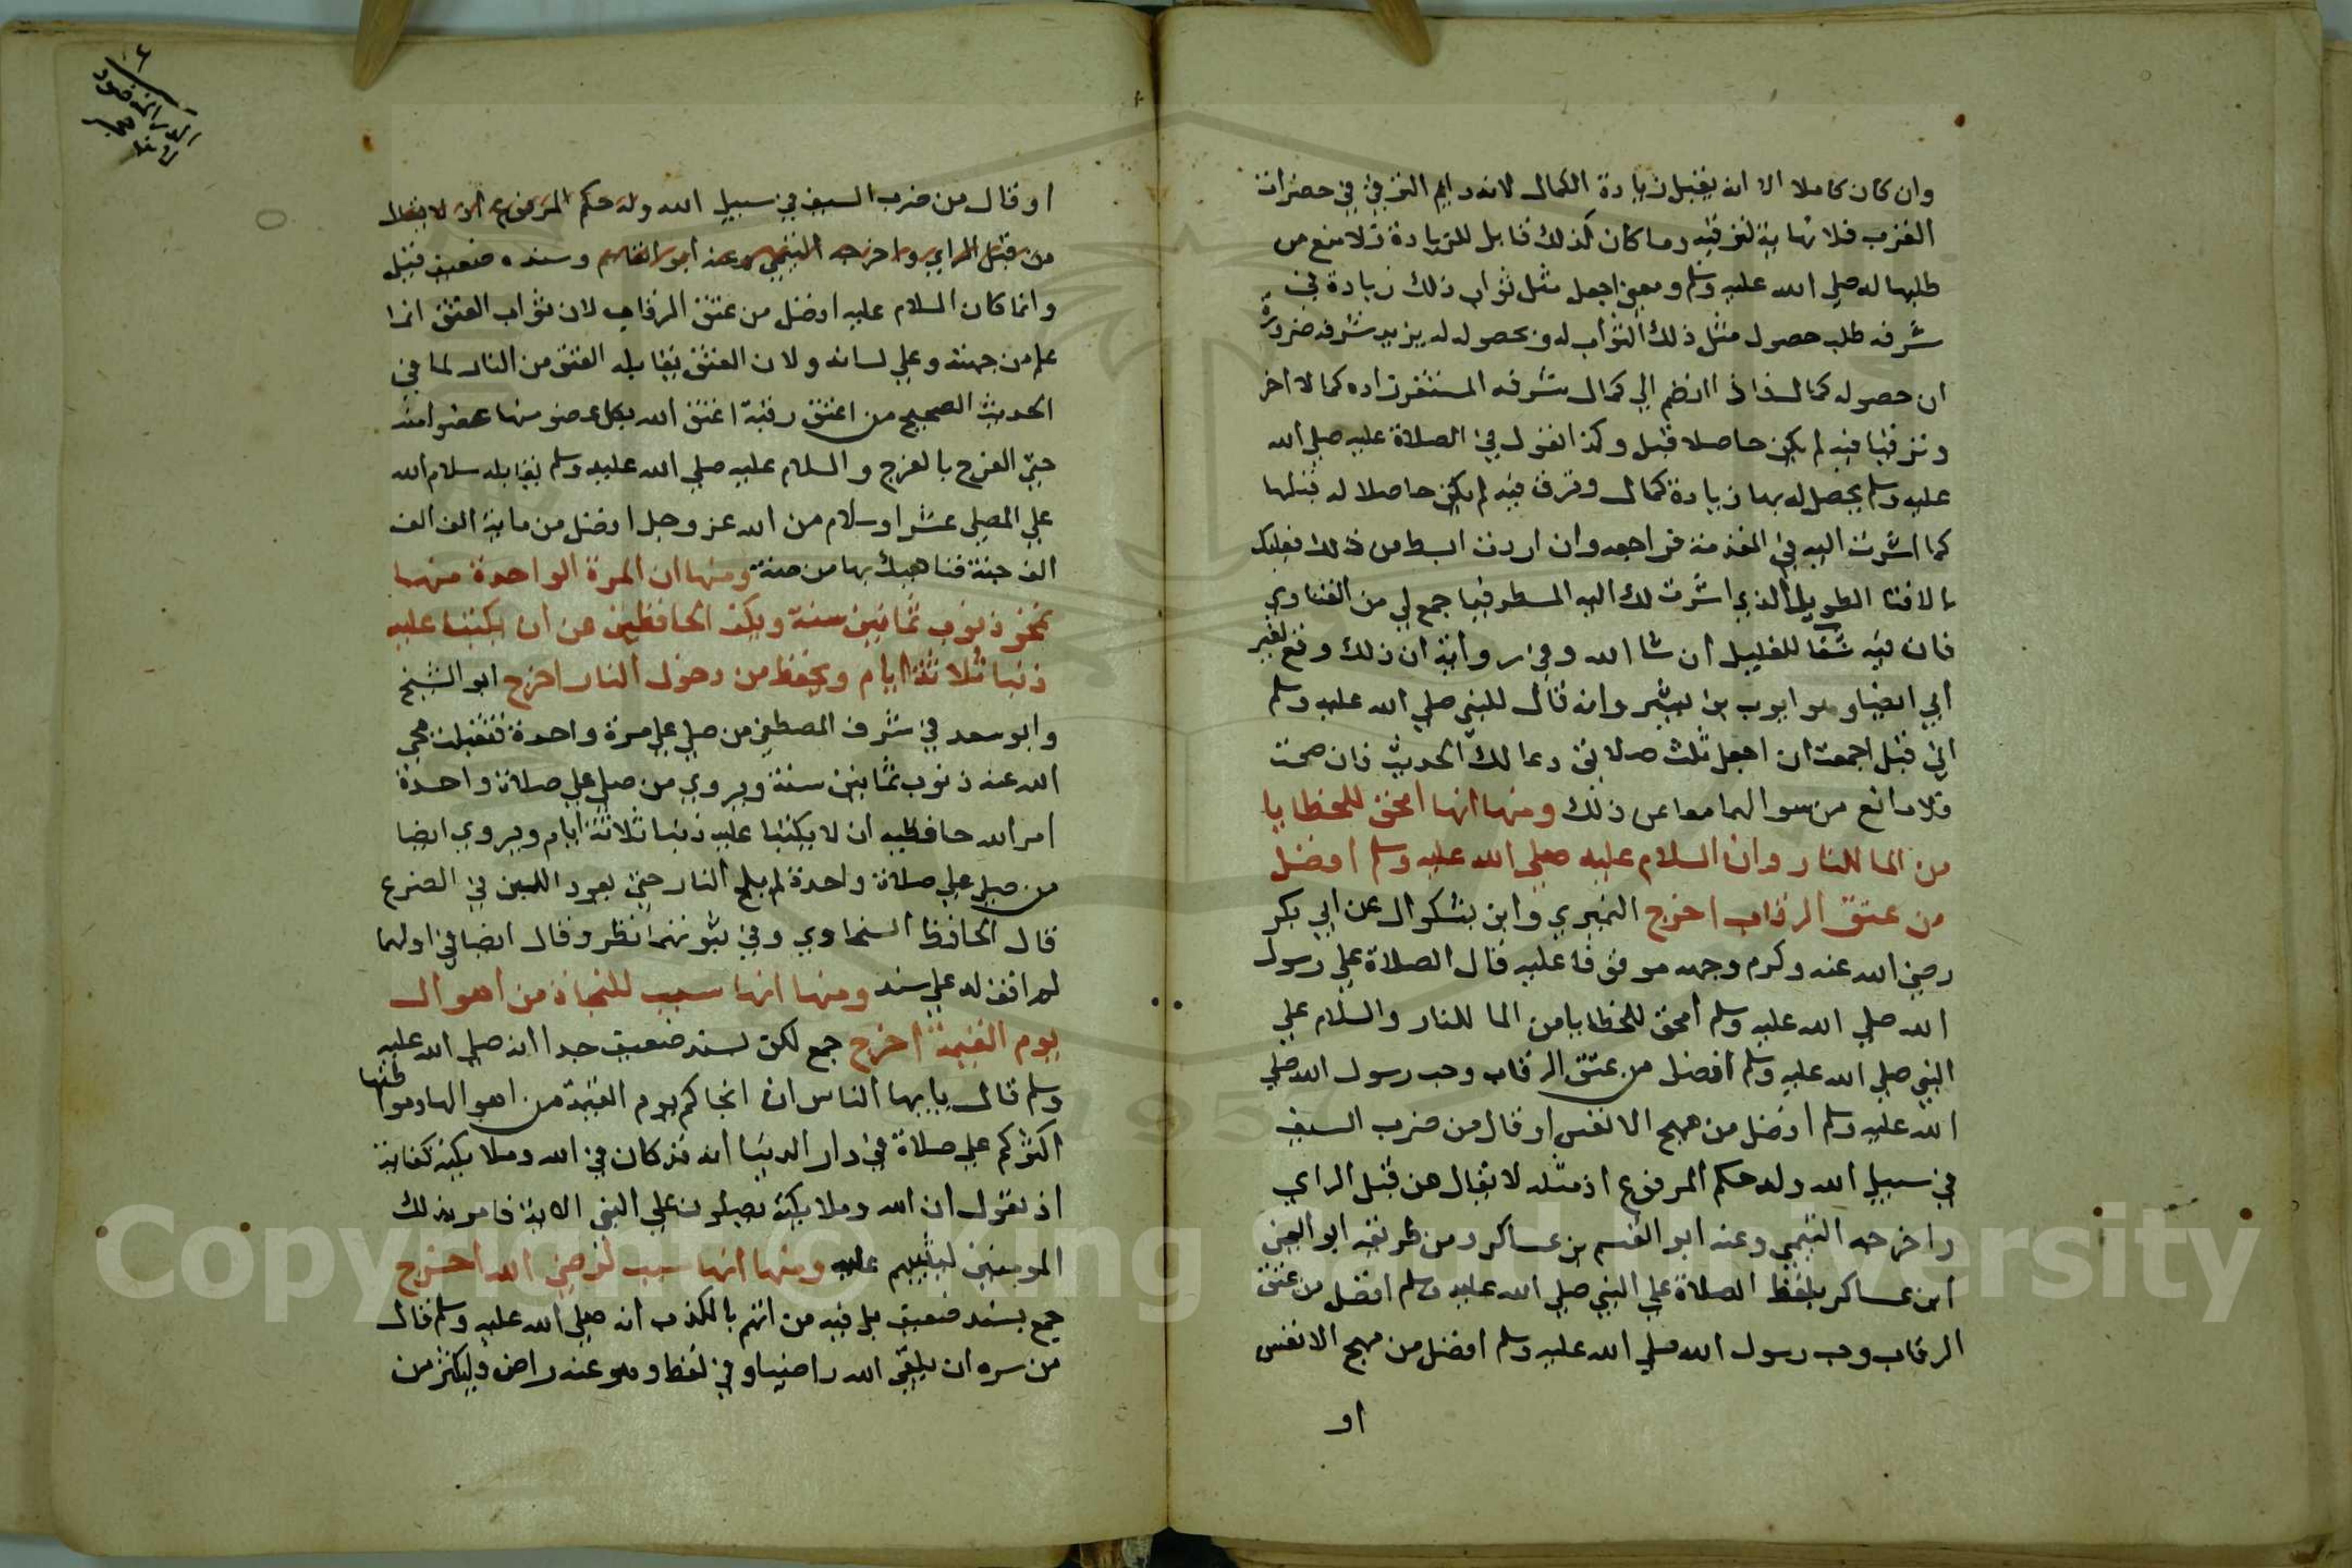 وان كان كاملا الا انه يقبل زيادة الكمال لانه دايم الترقي في حضرات
القرب فلا نهاية لترقيه وما كان كذلك قابل للزيادة فلا منع من
طلبها له صلى الله عليه وسلم ومعني اجعل مثل ثواب ذلك زيادة في
شرفه طلب حصول مثل ذلك الثواب له وبحصوله له يزيد شرفه ضرورة
ان حصوله كمال اذا انضم الي كمال شرفه المستقر زاده كمالا اخر
وترقيا فيه لم يكن حاصلا قبل وكذا القول في الصلاة عليه صلي الله
عليه وسلم يحصل له بها زيادة كمال وترق فيه لم يكن حاصلا له قبلها
كما اشرت اليه في المقدمة فراجعه وان اردت ابسط من ذلك فعليك
بالافتا الطويل الذي اشرت لك اليه المسطر فيما جمع لي من الفتاوي
فان فيه شفا للغليل ان شا الله وفي رواية ان ذلك وقع لغير
ابي ايضا وهو ايوب بن بشير وانه قال للنبي صلي الله عليه وسلم
اني قد اجمعت ان اجعل ثلث صلاتي دعا لك الحديث فان صحت
فلا مانع من سوالهما معا عن ذلك ومنها انها امحق للخطايا
من الما للنار وان السلام عليه صلي الله عليه وسلم افضل
من عتق الرقاب اخرج النميري وابن بشكوال عن ابي بكر
رضي الله عنه وكرم وجهه موقوفا عليه قال الصلاة علي رسول
الله صلي الله عليه وسلم امحق للخطايا من الما للنار والسلام علي
النبي صلي الله عليه وسلم افضل من عتق الرقاب وحب رسول الله صلي
الله عليه وسلم افضل من مهج الانفس او قال من ضرب السيف
في سبيل الله وله حكم المرفوع اذ مثله لا يقال من قبل الراي
واخرجه التيمي وعنه ابو القسم بن عساكر ومن طريقه ابو اليمن
ابن عساكر بلفظ الصلاة علي النبي صلي الله عليه وسلم افضل من عتق
الرقاب وحب رسول الله صلي الله عليه وسلم افضل من مهج الانفس
او
الدر المنضود
لابن حجر
او قال من ضرب السيف في سبيل الله وله حكم المرفوع اذ لا يقال
من قبل الراي واخرجه التيمي وعنه ابو القاسم وسنده ضعيف قيل
وانما كان السلام عليه افضل من عتق الرقاب لان ثواب العتق انما
علم من جهته وعلي لسانه ولان العتق يقابله العتق من النار لما في
الحديث الصحيح من اعتق رقبة اعتق الله بكل عضو منها عضوا منه
حتي الفرج بالفرج والسلام عليه صلي الله عليه وسلم يقابله سلام الله
علي المصلي عشرا وسلام من الله عز وجل افضل من ماية الف الف
الف جنة فناهيك بها من منة ومنها ان المرة الواحدة منها
تمحو ذنوب ثمانين سنة ويكف الحافظين عن ان يكتبا عليه
ذنبا ثلاثة ايام ويحفظ من دخول النار اخرج ابو الشيخ
وابو سعد في شرف المصطفي من صلي علي مرة واحدة فتقبلت محي
الله عنه ذنوب ثمانين سنة ويروي من صلي علي صلاة واحدة
امر الله حافظيه ان لا يكتبا عليه ذنبا ثلاثة ايام ويروي ايضا
من صلي علي صلاة واحدة لم يلج النار حتي يعود اللبن في الضرع
قال الحافظ السخاوي وفي ثبوتهما نظر وقال ايضا في اولهما
لم اقف له علي سند ومنها انها سبب للنجاة من اهوال
يوم القيمة اخرج جمع لكن بسند ضعيف جدا انه صلي الله عليه
وسلم قال يا ايها الناس ان انجاكم يوم القيمة من اهوالها ومواطنها
اكثركم علي صلاة في دار الدنيا انه قد كان في الله وملايكته كفاية
اذ يقول ان الله وملايكته يصلون علي النبي الاية فامر بذلك
المومنين ليثيبهم عليه ومنها انها سبب لرضي الله اخرج
جمع بسند ضعيف بل فيه من اتهم بالكذب انه صلي الله عليه وسلم قال
من سره ان يلقي الله راضيا وفي لفظ وهو عنه راض فليكثر من
Copyright © King Saud University
1957